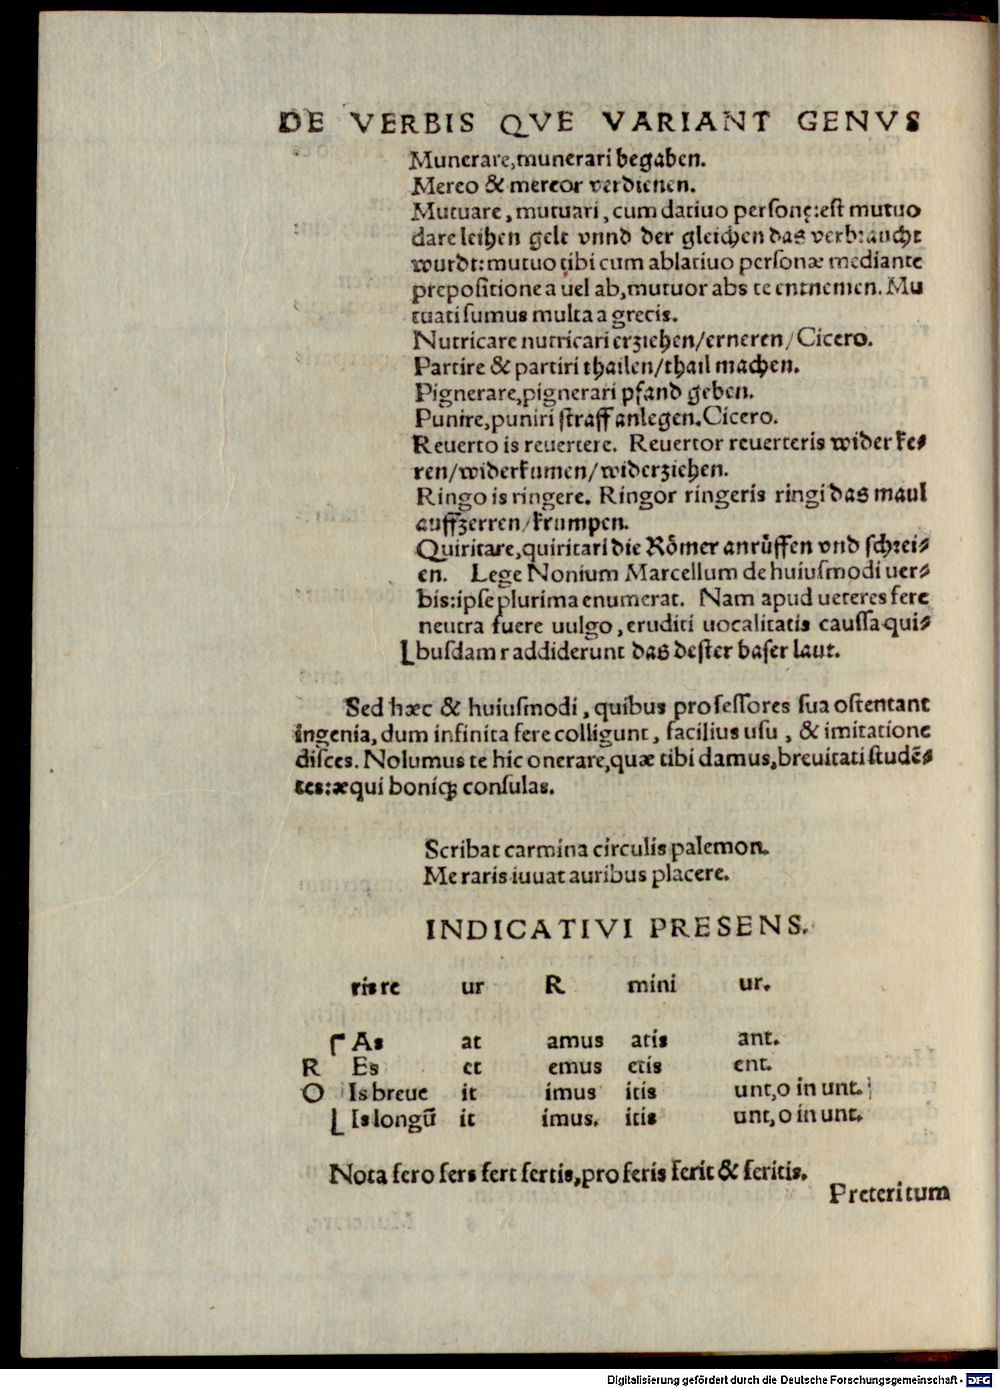 DE VERBIS QVE VARIANT GENVS
Munerare,munerari begaben.
Mereo & mereor verdienen.
Mutuare, mutuari, cum datiuo personę:est mutuo
dare leihen gelt vnnd der gleichen das verbraucht
wurdt:mutuo tibi cum ablatiuo personæ mediante
prepositione a uel ab,mutuor abs te entnemen. Mu
tuati sumus multa a grecis.
Nutricare nutricari erziehen/erneren/Cicero.
Partire & partiri thailen/thail machen.
Pignerare,pignerari pfand geben.
Punire,puniri straff anlegen.Cicero.
Reuerto is reuertere. Reuertor reuerteris wider ke⸗
ren/widerkumen/widerziehen.
Ringo is ringere. Ringor ringeris ringi das maul
auffzerren/krumpen.
Quiritare,quiritari die Rőmer anrůffen vnd schrei⸗
en. Lege Nonium Marcellum de huiusmodi uer⸗
bis:ipse plurima enumerat. Nam apud ueteres fere
neutra fuere uulgo, eruditi uocalitatis caussa qui⸗
busdam r addiderunt das dester baser laut.
Sed hæc & huiusmodi, quibus professores sua ostentant
ingenia, dum infinita fere colligunt, facilius usu, & imitatione
disces. Nolumus te hic onerare,quæ tibi damus,breuitati studẽ⸗
tes:æqui boniqꝫ consulas.
Scribat carmina circulis palemon.
Me raris iuuat auribus placere.
INDICATIVI PRESENS.
ris re ur R mini ur.
As at amus atis ant.
R Es et emus etis ent.
O Is breue it imus itis unt,o in unt.
Is longũ it imus. itis unt,o in unt.
Nota fero fers fert fertis,pro feris ferit & feritis.
Preteritum
Digitalisierung gefördert durch die Deutsche Forschungsgemeinschaft - DFG